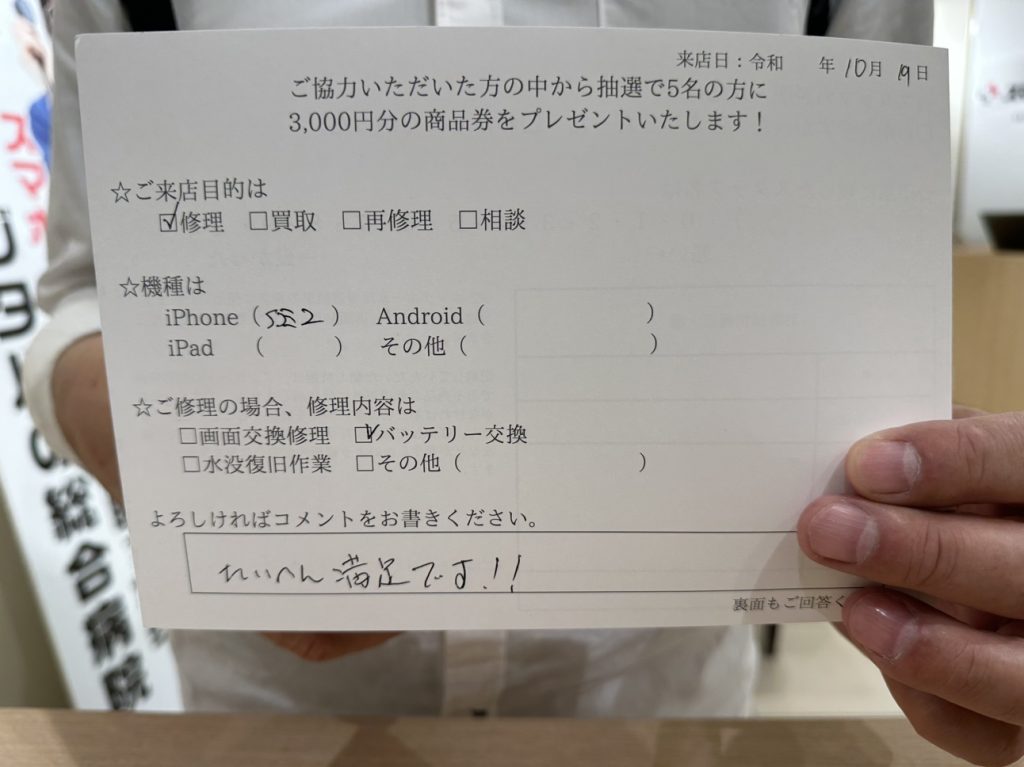 来店日：令和　　年 10月 19日
ご協力いただいた方の中から抽選で5名の方に
3,000円分の商品券をプレゼントいたします！
☆ご来店目的は
☑修理　□買取　□再修理　□相談
☆機種は
iPhone（SE2）　Android（　　　　　）
iPad　（　　　）　その他（　　　　　）
☆ご修理の場合、修理内容は
□画面交換修理　☑バッテリー交換
□水没復旧作業　□その他（　　　　　）
よろしければコメントをお書きください。
たいへん満足です!!
裏面もご回答く
スマホ
の総合病院